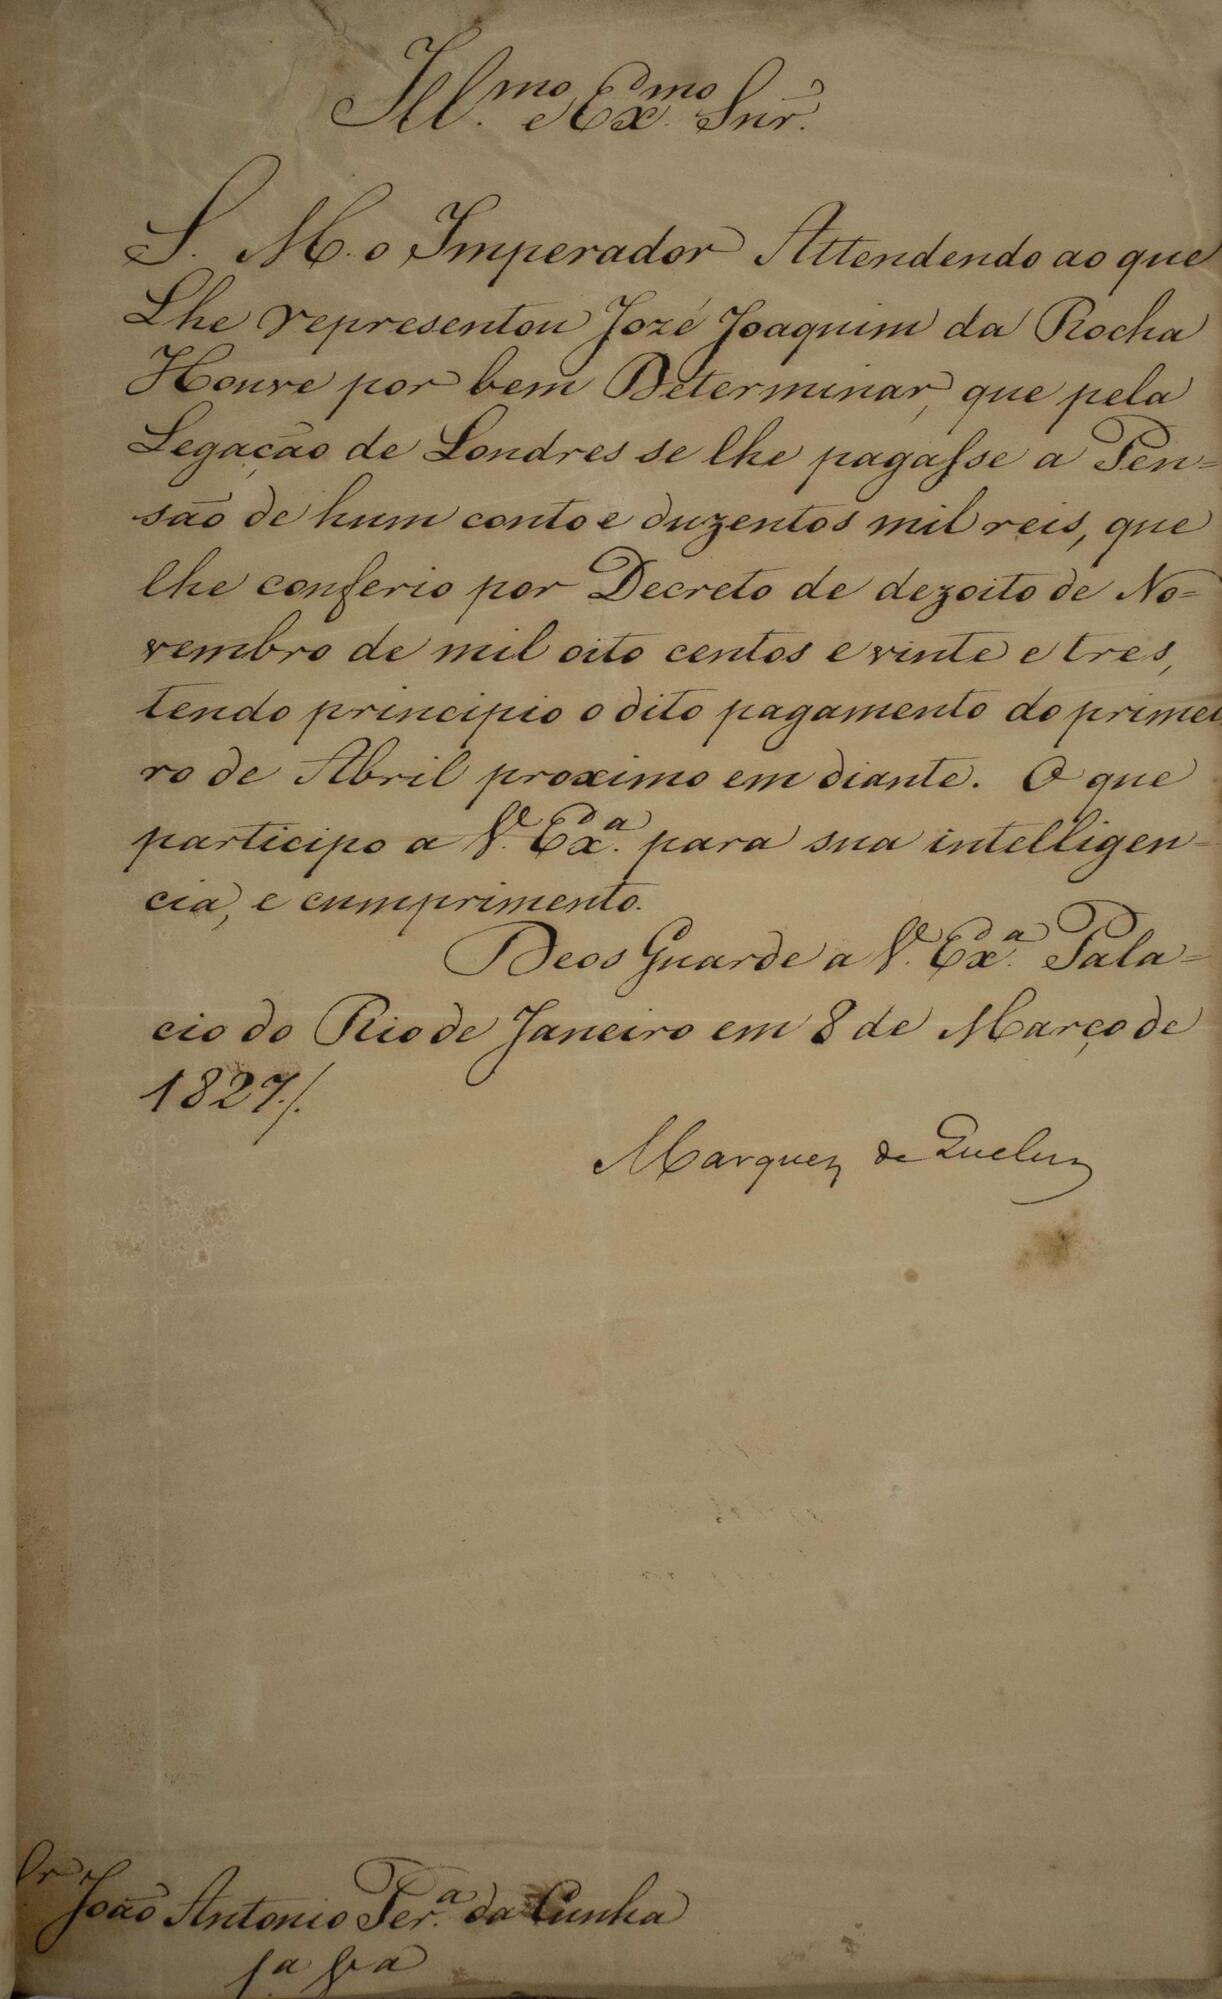 Ill.mo e Ex.mo Snr.
S. M. o Imperador Attendendo ao que
Lhe representou Jozé Joaquim da Rocha
Houve por bem Determinar, que pela
Legação de Londres se lhe pagasse a Pen=
são de hum conto e duzentos mil reis, que
lhe conferio por Decreto de dezoito de No=
vembro de mil oito centos e vinte e tres,
tendo principio o dito pagamento do primei
ro de Abril proximo em diante. O que
participo a V. Ex.a para sua intelligen=
cia, e cumprimento.
Deos Guarde a V. Ex.a Pala=
cio do Rio de Janeiro em 8 de Março de
1827./.
Marquez de Queluz
Snr João Antonio Per.a da Cunha